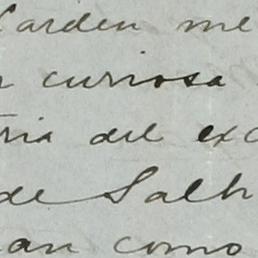 Carden me
curiosa
ria del exc
de Salh
an como